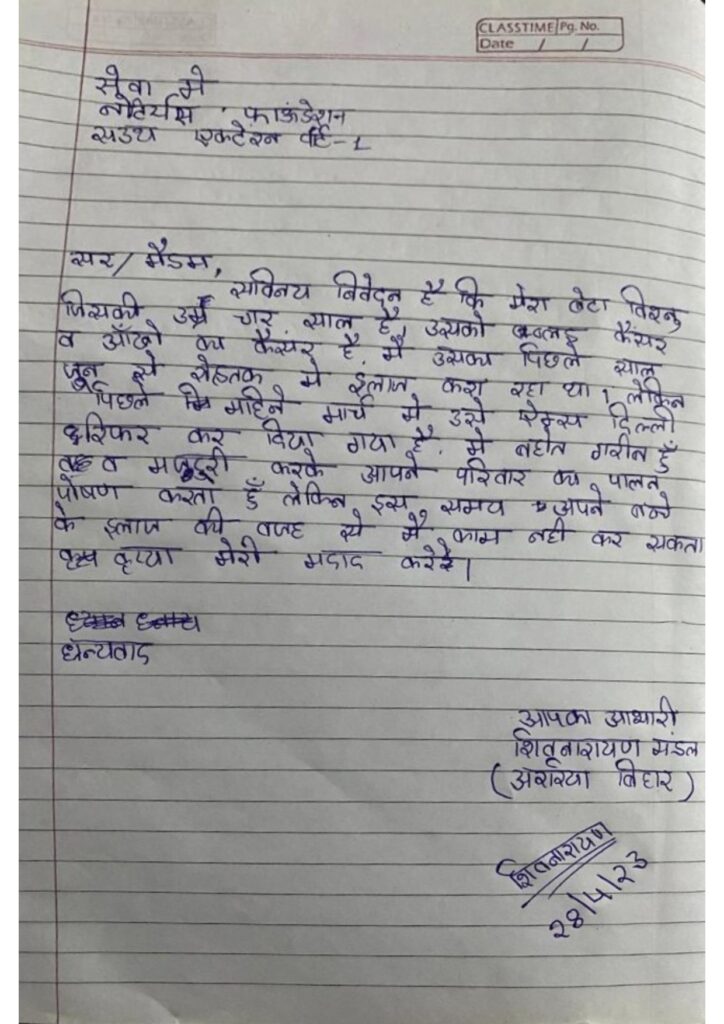 CLASSTIME Pg. No.
Date / /
सेवा मे
नोटियस फाऊंडेशन
सउथ एकटेशन पार्ट-1
सर/मैडम,
सविनय निवेदन है कि मेरा बेटा विशनु
जिसकी उम्र चार साल है, उसको ब्लड कैंसर
व आँखो का कैंसर है. मै उसका पिछले साल
जून से रोहतक मे ईलाज करा रहा था। लेकिन
पिछले महिने मार्च मे उसे ऐम्स दिल्ली
रिफर कर दिया गया है. मे बहोत गरीब हूँ
व मजदुरी करके आपने परिवार का पालन
पोषण करता हूँ लेकिन इस समय अपने बच्चे
के इलाज की वजह से मै काम नही कर सकता
कृप्या मेरी मदाद करेरे।
धन्यवाद
आपका आभारी
शिवनारायण मंडल
(अररिया बिहार)
शिवनारायण
28/4/23